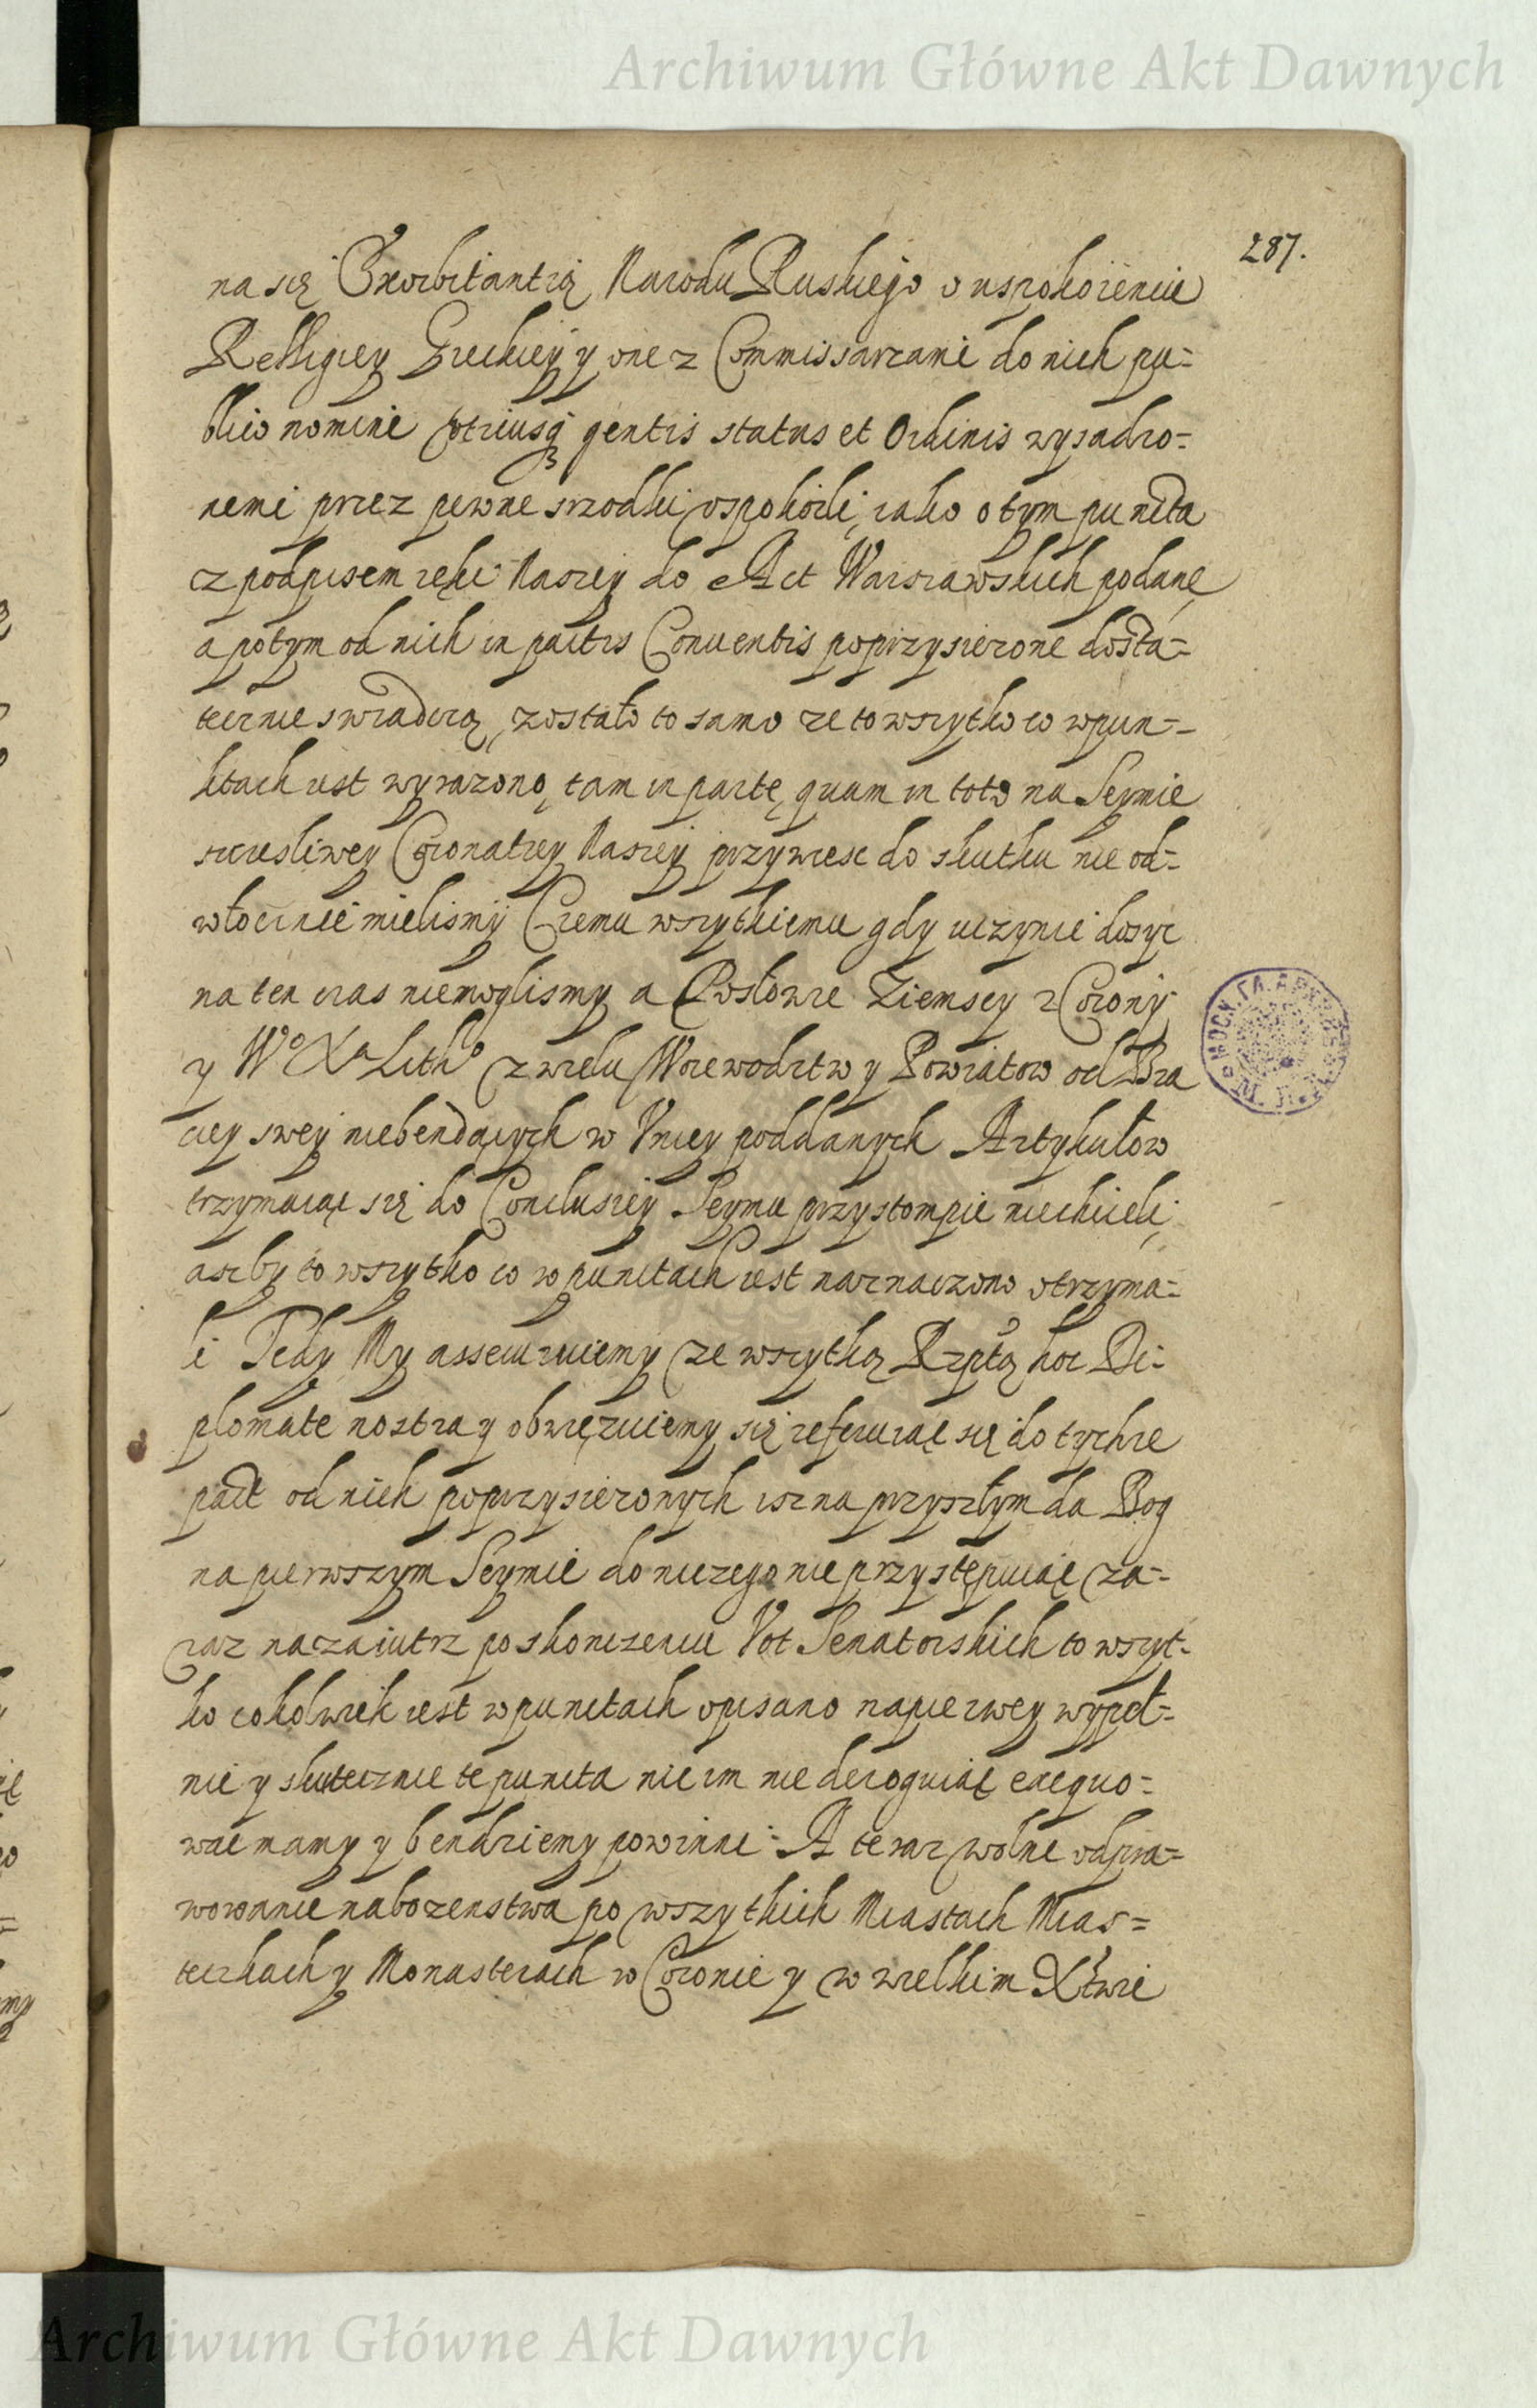 Archiwum Główne Akt Dawnych
287.
na się Exorbitantią Narodu Ruskiego o uspokoienie
Relligiey Greckiey y one z Commissarzami do nich pu=
blico nomine vtriusq gentis status et Ordinis wysadzo=
nemi przez pewne srzodki vspokoili, iako o tym puncta
z podpisem ręki Naszey do Act Warszawskich podane
a potym od nich in pactis Conuentis poprzysiezone dosta=
tecznie swiadczą, zostało to samo ze to wszytko co w pun=
ktach iest wyrazono, tam in parte, quam in toto na Seymie
szczesliwey Coronatiey Naszey przywiesc do skutku nie od=
włocznie mielismy Czemu wszytkiemu gdy uczynic dosyc
na ten czas niemoglismy a Posłowie Ziemscy z Corony
y Wo Xa Litho z wielu Woiewodztw y Powiatow od Bra
ciey swey niebendących w Vniey poddanych Artykułow
trzymaiąc się do Conclusiey Seymu przystompic niechcieli,
aszby to wszytko co w punctach iest naznaczono otrzyma=
li Tedy My assecuruiemy ze wszytką Rzptą hoc Di=
plomate nostra y obwięzuiemy się referuiąc się do tychze
pact od nich poprzysiezonych isz na przyszłym da Bog
na pierwszym Seymie do niczego nie przystępuiąc za=
raz nazaiutrz po skonczeniu Vot Senatorskich to wszyt=
ko cokolwiek iest w punctach opisano napierwey wypeł=
nic y skutecznie te puncta nic im nie deroguiąc exequo=
wac mamy y bendziemy powinni: A teraz wolne odpra=
wowanie nabozenstwa po wszytkich Miastach Mias=
teczkach y Monasterach w Coronie y w wielkim Xtwie
Archiwum Główne Akt Dawnych